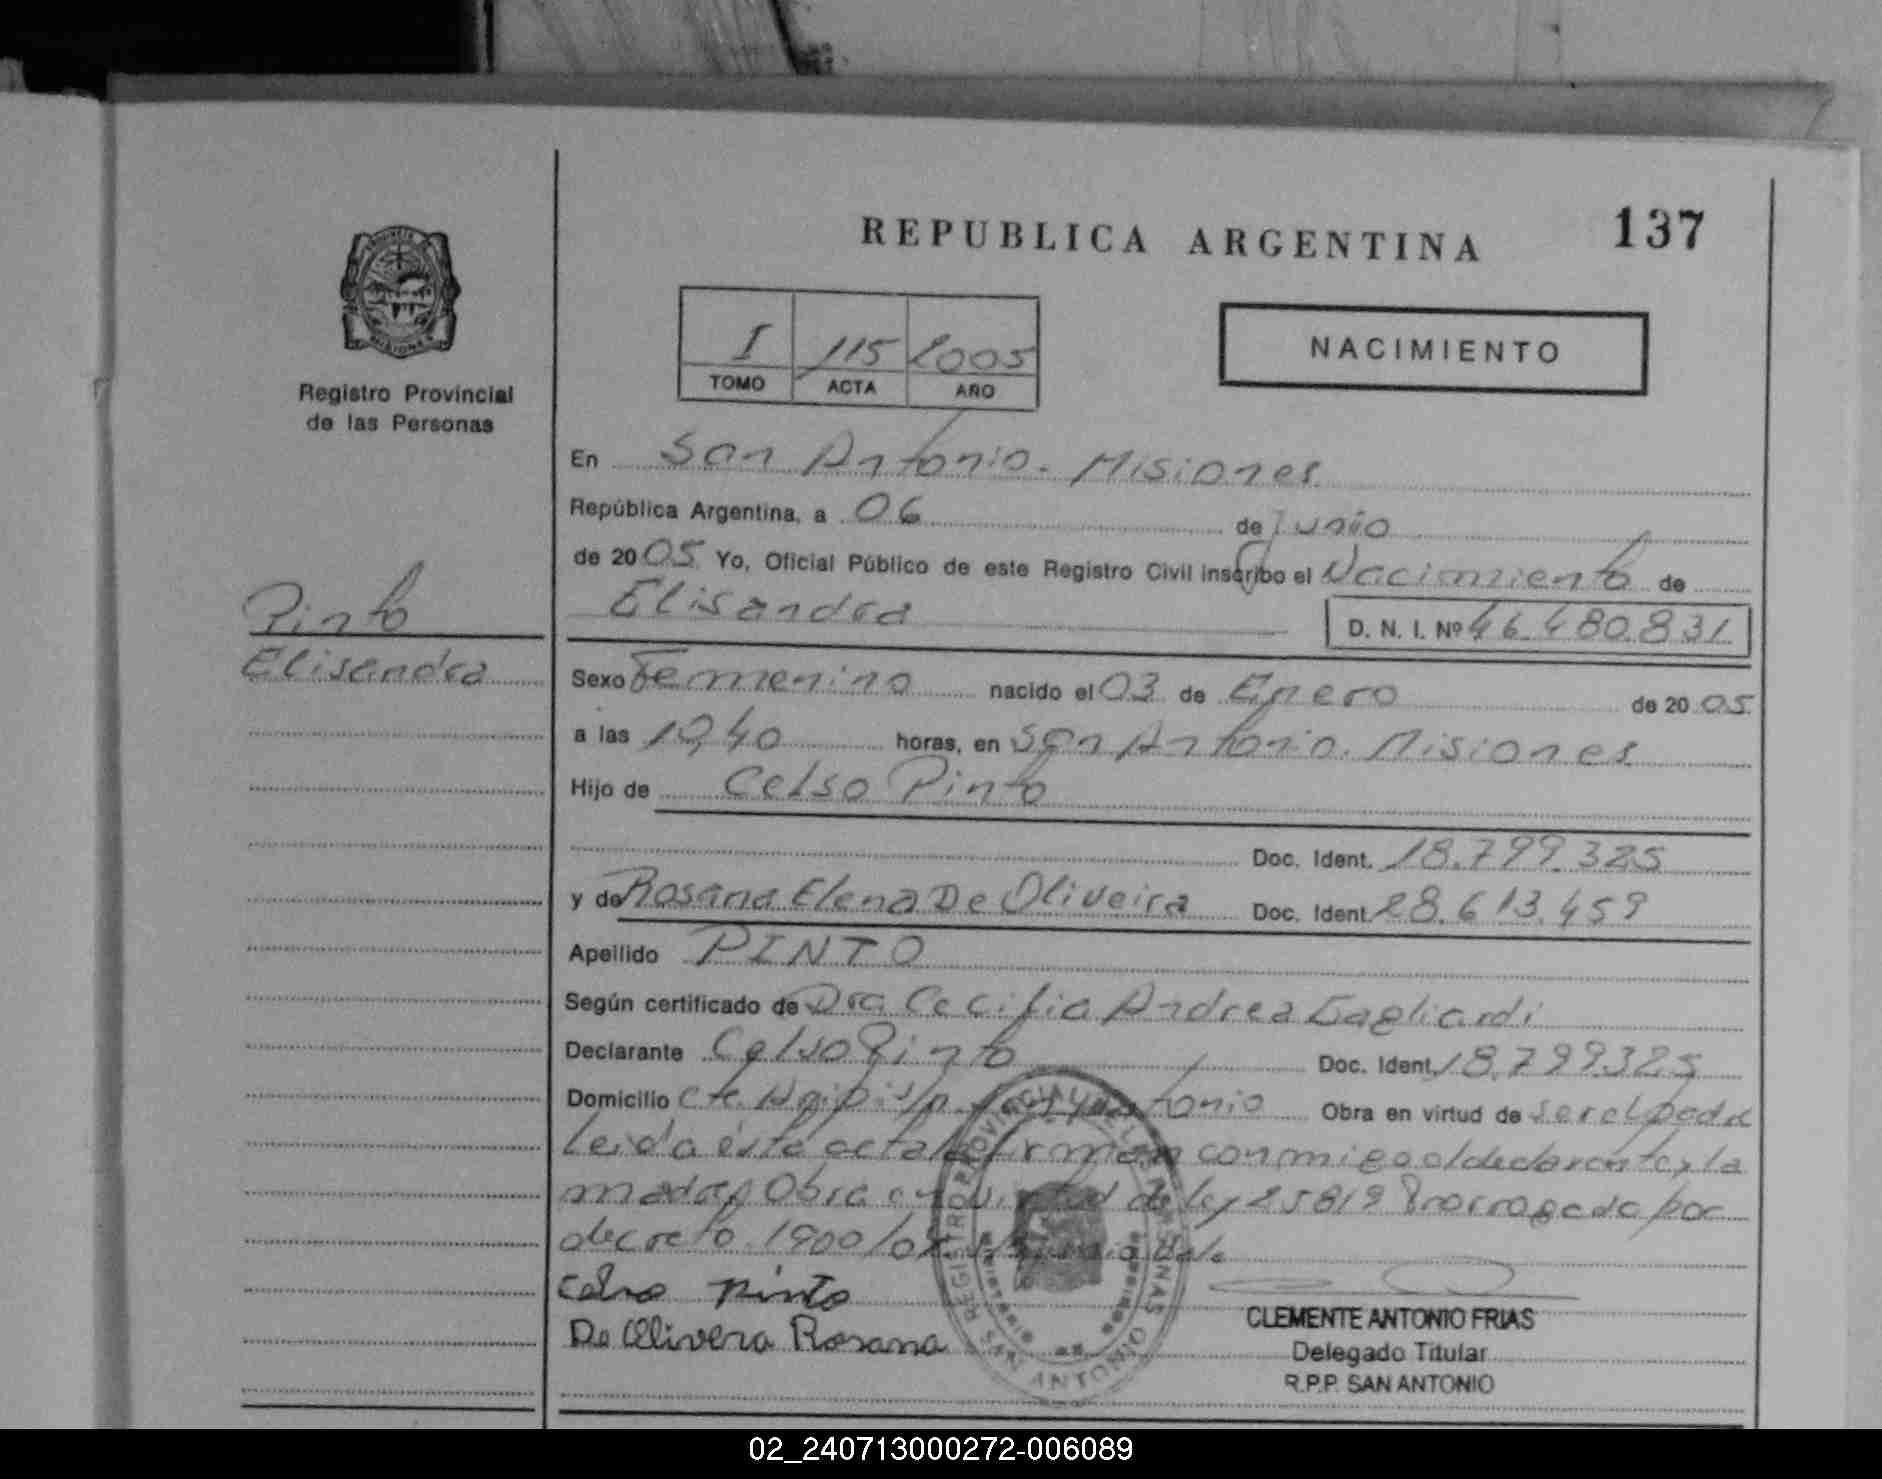 REPUBLICA ARGENTINA
137
I 115 2005
TOMO ACTA AÑO
NACIMIENTO
PROVINCIA DE MISIONES
Registro Provincial
de las Personas
Pinto
Elisandra
En San Antonio - Misiones
República Argentina, a 06 de Junio
de 2005 Yo, Oficial Público de este Registro Civil inscribo el Nacimiento de
Elisandra D. N. I. Nº 46.480.831
Sexo Femenino nacido el 03 de Enero de 2005
a las 10,40 horas, en San Antonio. Misiones
Hijo de Celso Pinto
Doc. Ident. 18.799.325
y de Rosana Elena De Oliveira Doc. Ident. 28.613.459
Apellido PINTO
Según certificado de Dra Cecilia Andrea Gagliardi
Declarante Celso Pinto Doc. Ident. 18.799325
Domicilio s/n. San Antonio Obra en virtud de ser el padre
Leida ésta acta la firman conmigo el declarante y la
madre Obra en virtud de ley 25819 Prorrogado por
decreto 1900/04
Celso Pinto
De Olivera Rosana
REGISTRO PROVINCIAL DE LAS PERSONAS
SAN ANTONIO
CLEMENTE ANTONIO FRIAS
Delegado Titular
R.P.P. SAN ANTONIO
02_240713000272-006089